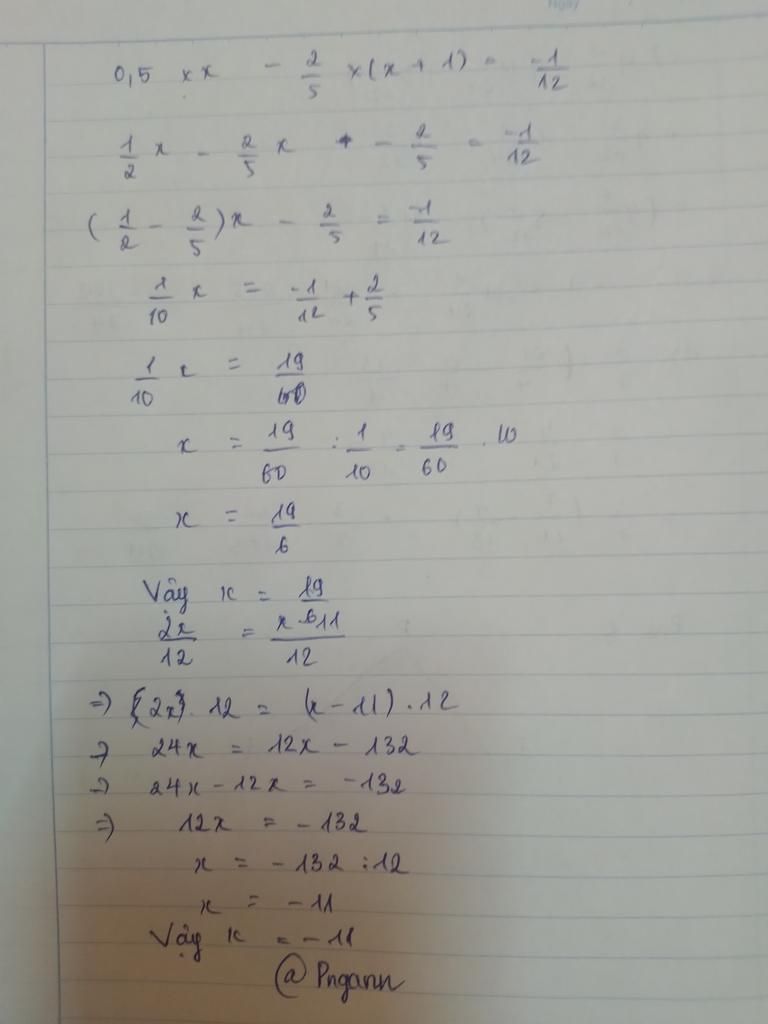 0,5 × x - 2/5 × (x + 1) = -1/12
1/2 x - 2/5 x - 2/5 = -1/12
(1/2 - 2/5)x - 2/5 = -1/12
1/10 x = -1/12 + 2/5
1/10 x = 19/60
x = 19/60 : 1/10 = 19/60 . 10
x = 19/6
Vậy x = 19/6
2x/12 = x - 11/12
=> (2x) . 12 = (x - 11) . 12
=> 24x = 12x - 132
=> 24x - 12x = -132
=> 12x = -132
x = -132 : 12
x = -11
Vậy x = -11
@Pngann